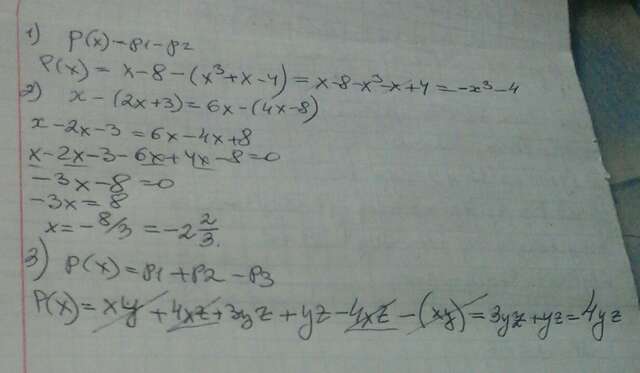 1) P(x) - p1 - p2
P(x) = x-8-(x³+x-4) = x-8-x³-x+4 = -x³-4
2) x-(2x+3) = 6x-(4x-8)
x-2x-3 = 6x-4x+8
x-2x-3-6x+4x-8=0
-3x-8=0
-3x=8
x=-8/3 = -2 2/3.
3) P(x) = p1+p2-p3
P(x) = xy+4xz+3yz+yz-4xz-(xy) = 3yz+yz=4yz